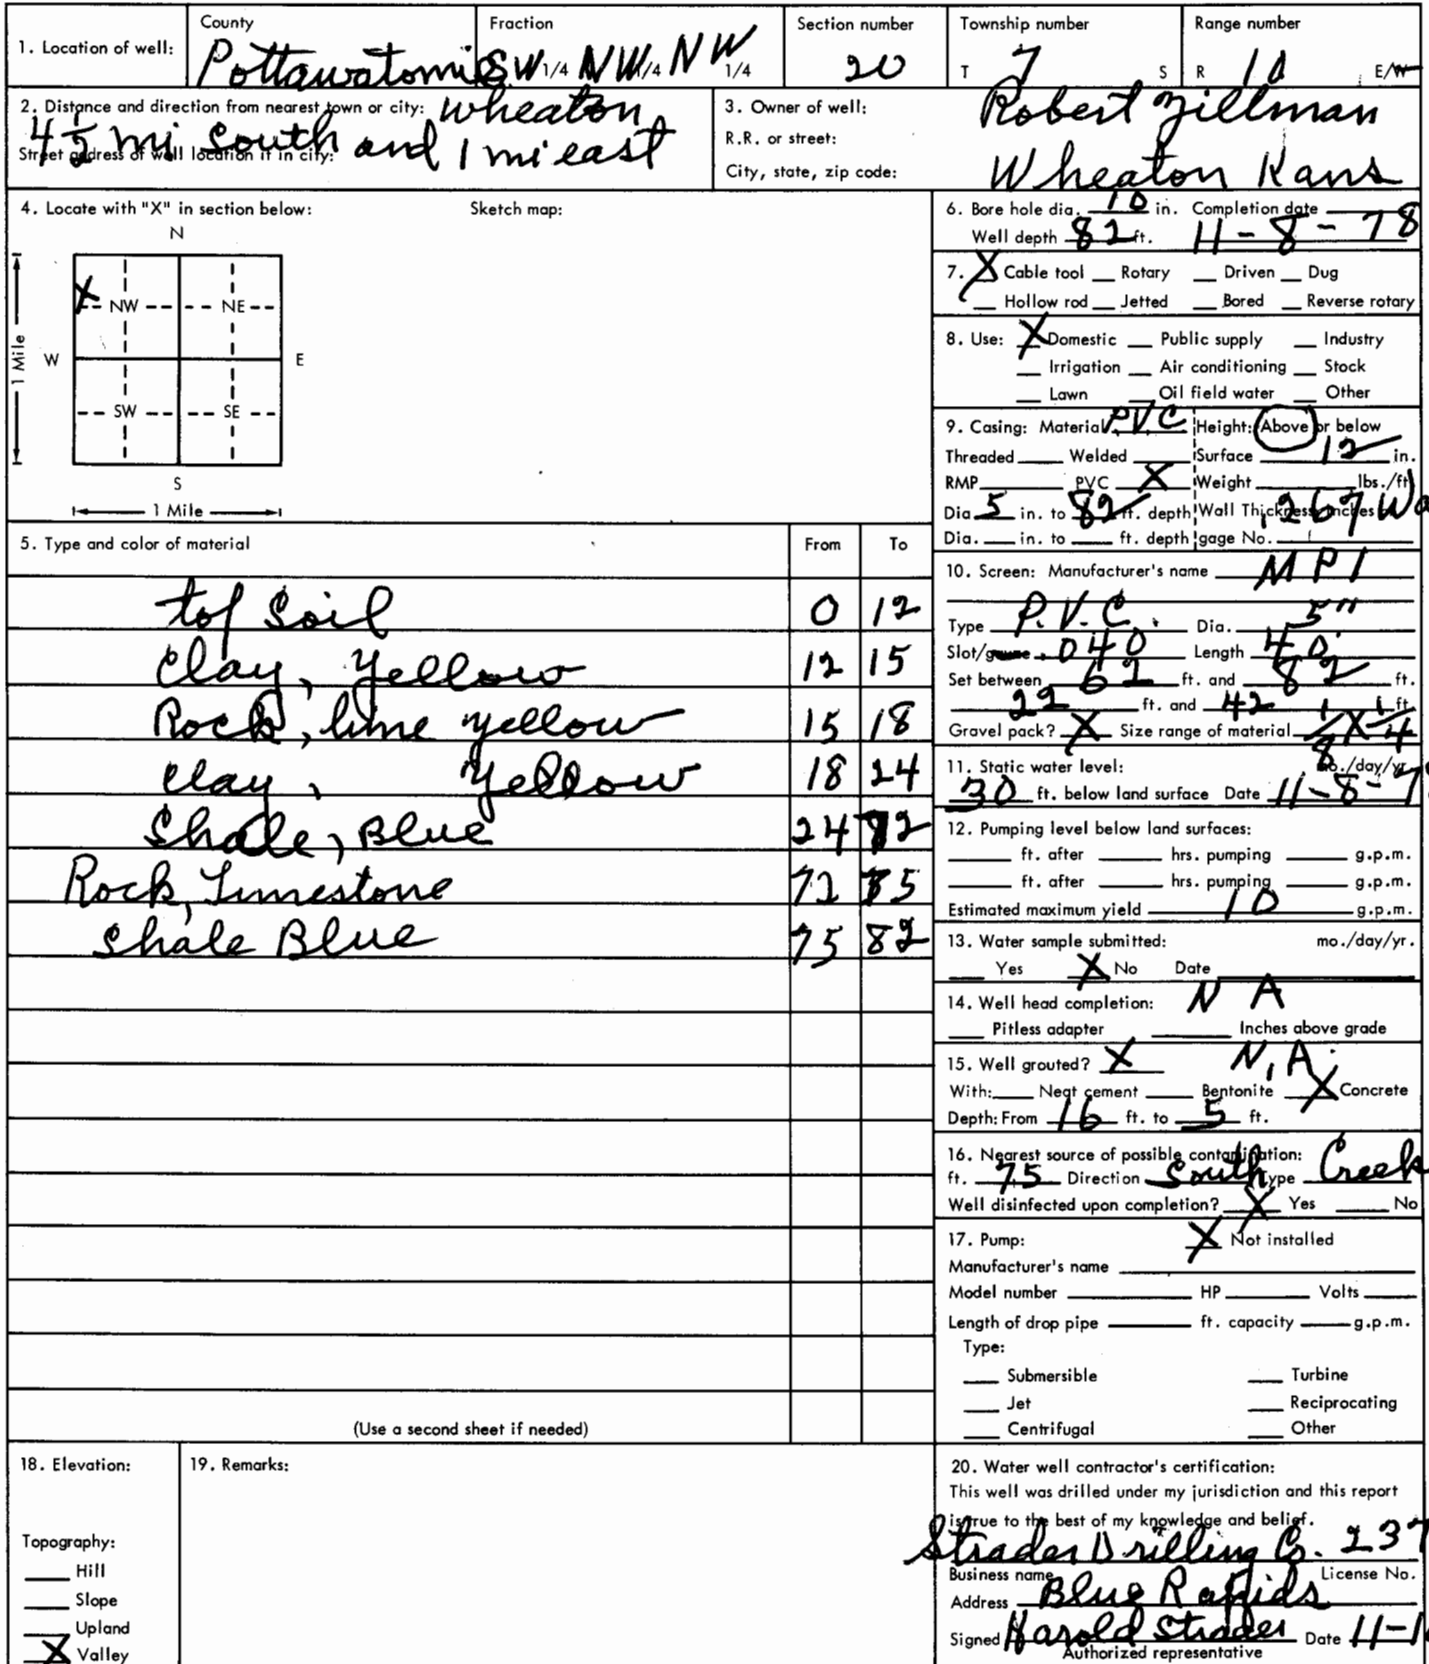 1. Location of well: County Pottawatomie Fraction SW 1/4 NW 1/4 NW 1/4 Section number 20 Township number T 7 S Range number R 10 E/W
2. Distance and direction from nearest town or city: Wheaton
4 1/2 mi South and 1 mi east
Street address of well location if in city:
3. Owner of well: Robert Zillman
R.R. or street:
City, state, zip code: Wheaton Kans
4. Locate with "X" in section below: Sketch map:
N
X
NW NE
W E
1 Mile
SW SE
S
1 Mile
5. Type and color of material From To
top Soil 0 12
Clay, Yellow 12 15
Rock, lime yellow 15 18
Clay, Yellow 18 24
Shale, Blue 24 72
Rock, Limestone 72 75
Shale Blue 75 82
(Use a second sheet if needed)
6. Bore hole dia. 10 in. Completion date
Well depth 82 ft. 11-8-78
7. X Cable tool Rotary Driven Dug
Hollow rod Jetted Bored Reverse rotary
8. Use: X Domestic Public supply Industry
Irrigation Air conditioning Stock
Lawn Oil field water Other
9. Casing: Material P.V.C Height: Above or below
Threaded Welded Surface 12 in.
RMP PVC X Weight lbs./ft
Dia 5 in. to 82 ft. depth Wall Thickness: inches .267 Wa
Dia. in. to ft. depth gage No.
10. Screen: Manufacturer's name MPI
Type P.V.C. Dia. 5"
Slot/gauze .040 Length 40
Set between 62 ft. and 82 ft.
22 ft. and 42 ft.
Gravel pack? X Size range of material 1/8 X 1/4
11. Static water level: mo./day/yr.
30 ft. below land surface Date 11-8-7
12. Pumping level below land surfaces:
ft. after hrs. pumping g.p.m.
ft. after hrs. pumping g.p.m.
Estimated maximum yield 10 g.p.m.
13. Water sample submitted: mo./day/yr.
Yes X No Date
14. Well head completion: N A
Pitless adapter Inches above grade
15. Well grouted? X N.A.
With: Neat cement Bentonite X Concrete
Depth: From 16 ft. to 5 ft.
16. Nearest source of possible contamination:
ft. 75 Direction South Type Creek
Well disinfected upon completion? X Yes No
17. Pump: X Not installed
Manufacturer's name
Model number HP Volts
Length of drop pipe ft. capacity g.p.m.
Type:
Submersible Turbine
Jet Reciprocating
Centrifugal Other
18. Elevation:
Topography:
Hill
Slope
Upland
X Valley
19. Remarks:
20. Water well contractor's certification:
This well was drilled under my jurisdiction and this report
is true to the best of my knowledge and belief.
Strader Drilling Co. 237
Business name License No.
Address Blue Rapids
Signed Harold Strader Date 11-1
Authorized representative